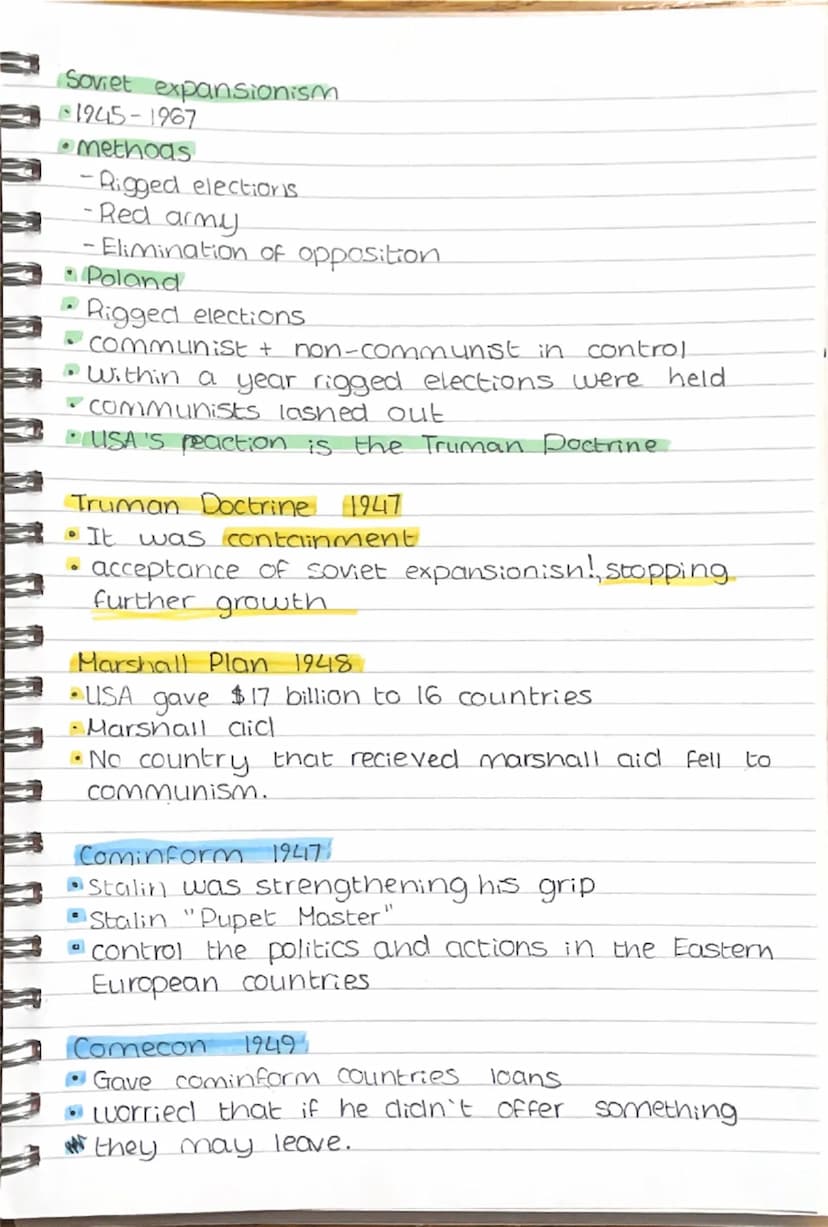 Soviet expansionism
• 1945-1967
• methods
- Rigged elections
- Red army
- Elimination of opposition
• Poland
• Rigged elections
• communist + non-communist in control
• Within a year rigged elections were held
• communists lashed out
• USA's reaction is the Truman Doctrine
Truman Doctrine 1947
• It was containment
• acceptance of soviet expansionish!, stopping
further growth
Marshall Plan 1948
• USA gave $17 billion to 16 countries
• Marshall aid
• No country that recieved marshall aid fell to
communism.
Cominform 1947
• Stalin was strengthening his grip
• Stalin "Pupet Master"
• control the politics and actions in the Eastern
European countries
Comecon 1949
• Gave cominform countries loans
• worried that if he didn't offer something
they may leave.